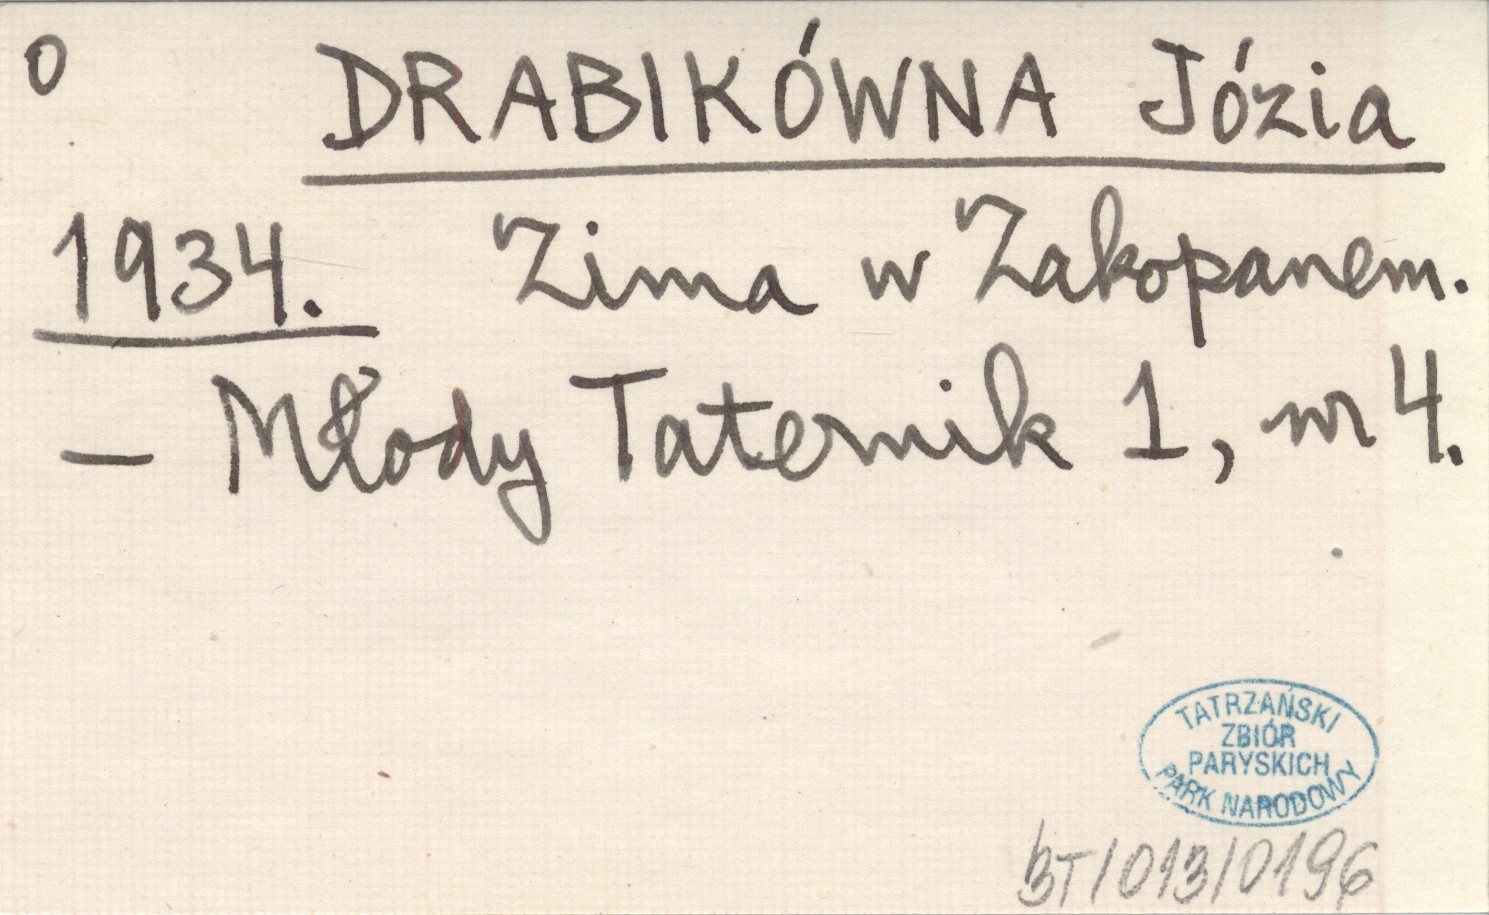 o DRABIKÓWNA Józia
1934. Zima w Zakopanem.
– Młody Taternik 1, nr 4.
TATRZAŃSKI
ZBIÓR
PARYSKICH
PARK NARODOWY
BT/013/0196